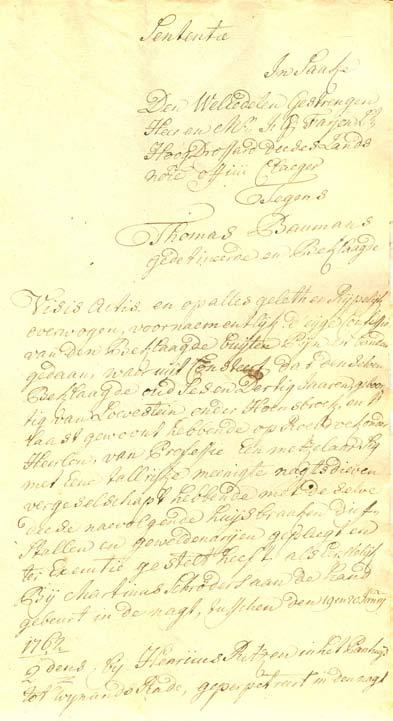 Sententie
In Saeke
Den Weledelen Gestrengen
Heer en Mr.
Hoog Drossard deeses Lands
noie officii Claeger
Tegens
Thomas Baumans
gedetineerde en Beklaagde
Visis Actis en op alles gelet en Rijpelijk
overwogen, voornaementlijk d'eijge
van den Beklaagde buijten Pijn en banden
gedaan, waer uijt Consteert dat den selven
Beklaagde oud Ses en Dertig Jaaren geboor
tig van onder Hoensbroek, en
laast gewoont hebbende op
Heerlen, van Professie Een metzelaar sig
met eene tallrijke meenigte nagtsdieven
vergeselschapt hebbende met deselve
deese naevolgende huijsbraaken dief
stallen en geweldenarijen gepleegt en
ter Executie gestelt heeft als
Bij Martinus Schroders aan de hand
gebeurt in de nagt, tusschen den 19 en 20
176
2dens bij Henricus Ritzen in het
tot Wijnands Rade, geperpetreert in den nagt